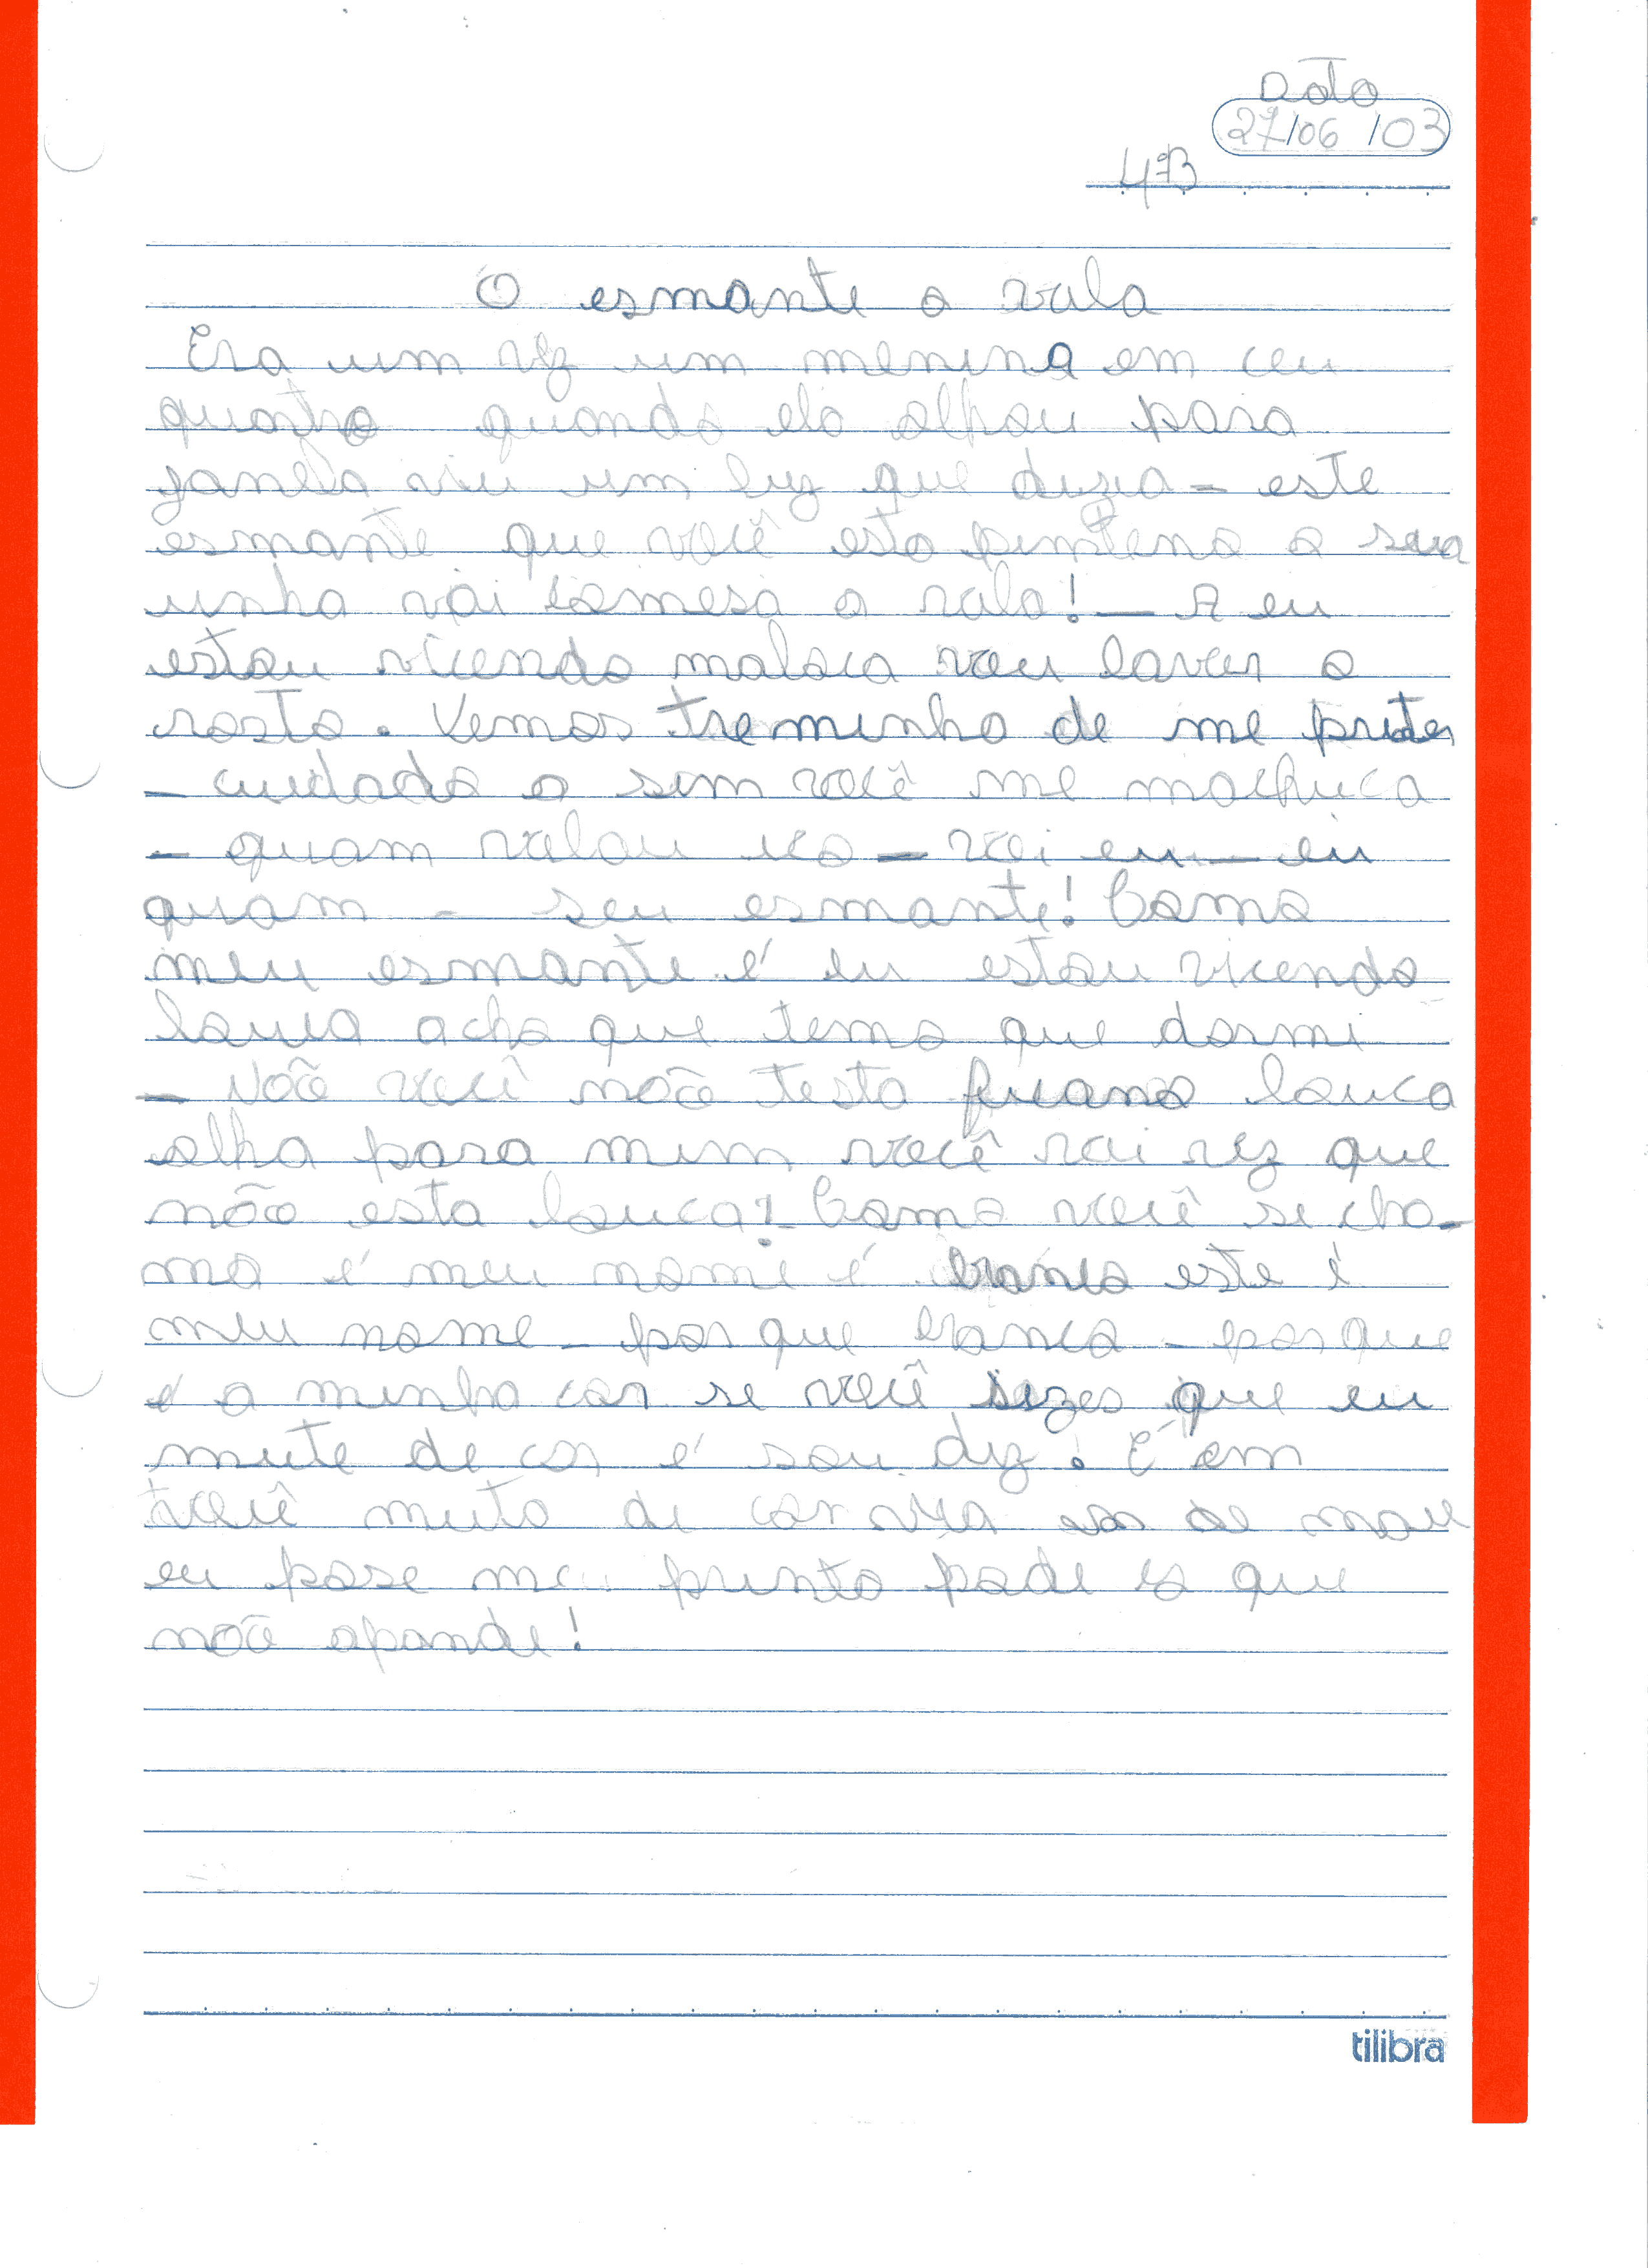 Data
27/06/03
4ªB
O esmante a vala
Era um vez um menina em ceu
quarto quando ela olhou para
ganela viu um luz que dizia - este
esmante que você esta pintena a sua
unha vai comesa a vala! - A eu
estou vicendo maloca vou lavar o
rosto. Vemos treminha de me priter
- cuidado a sim você me machuca
- quam valou iso - voi eu - eu
quam - seu esmante! Como
meu esmante é eu estou vicendo
louca acho que temo que dormi
- Não você não testa ficano louca
olha para mim você vai vez que
não esta louca! Como você se cha-
ma é meu nome é branco este é
meu nome - por que branco - por que
é a minha cor se você dizes que eu
mute de cor é sou diz. E em
você muto de cor vira mou
eu pose meu printo pode is que
não aponde!
tilibra